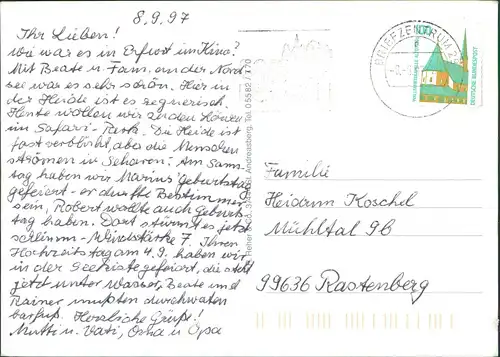 8.9.97
Ihr Lieben!
Wie war es in Erfurt im Kino?
Mit Beate u. Fam. an der Nord
see war es sehr schön. Hier in
der Heide ist es regnerisch.
Heute wollen wir zu den Löwen
im Safari-Park. Die Heide ist
fast verblüht, aber die Menschen
strömen in Scharen. Am Sams
tag haben wir Marius' Geburtstag
gefeiert - er durfte Bestimmer
sein, Robert wollte auch Geburts
tag haben. Dort stürmt es jetzt
schlimm - Windstärke 7. Ihren
Hochzeitstag am 4.9. haben wir
in der gefeiert, die steht
jetzt unter Wasser, Beate und
Rainer mußten durchwaten
barfuß. Herzliche Grüße!
Mutti u. Vati, Oma u. Opa
St. Andreasberg, Tel. 05582 / 770
BRIEFZENTRUM
DEUTSCHE BUNDESPOST
Familie
Heidrun Koschel
Mühltal 9b
99636 Rastenberg